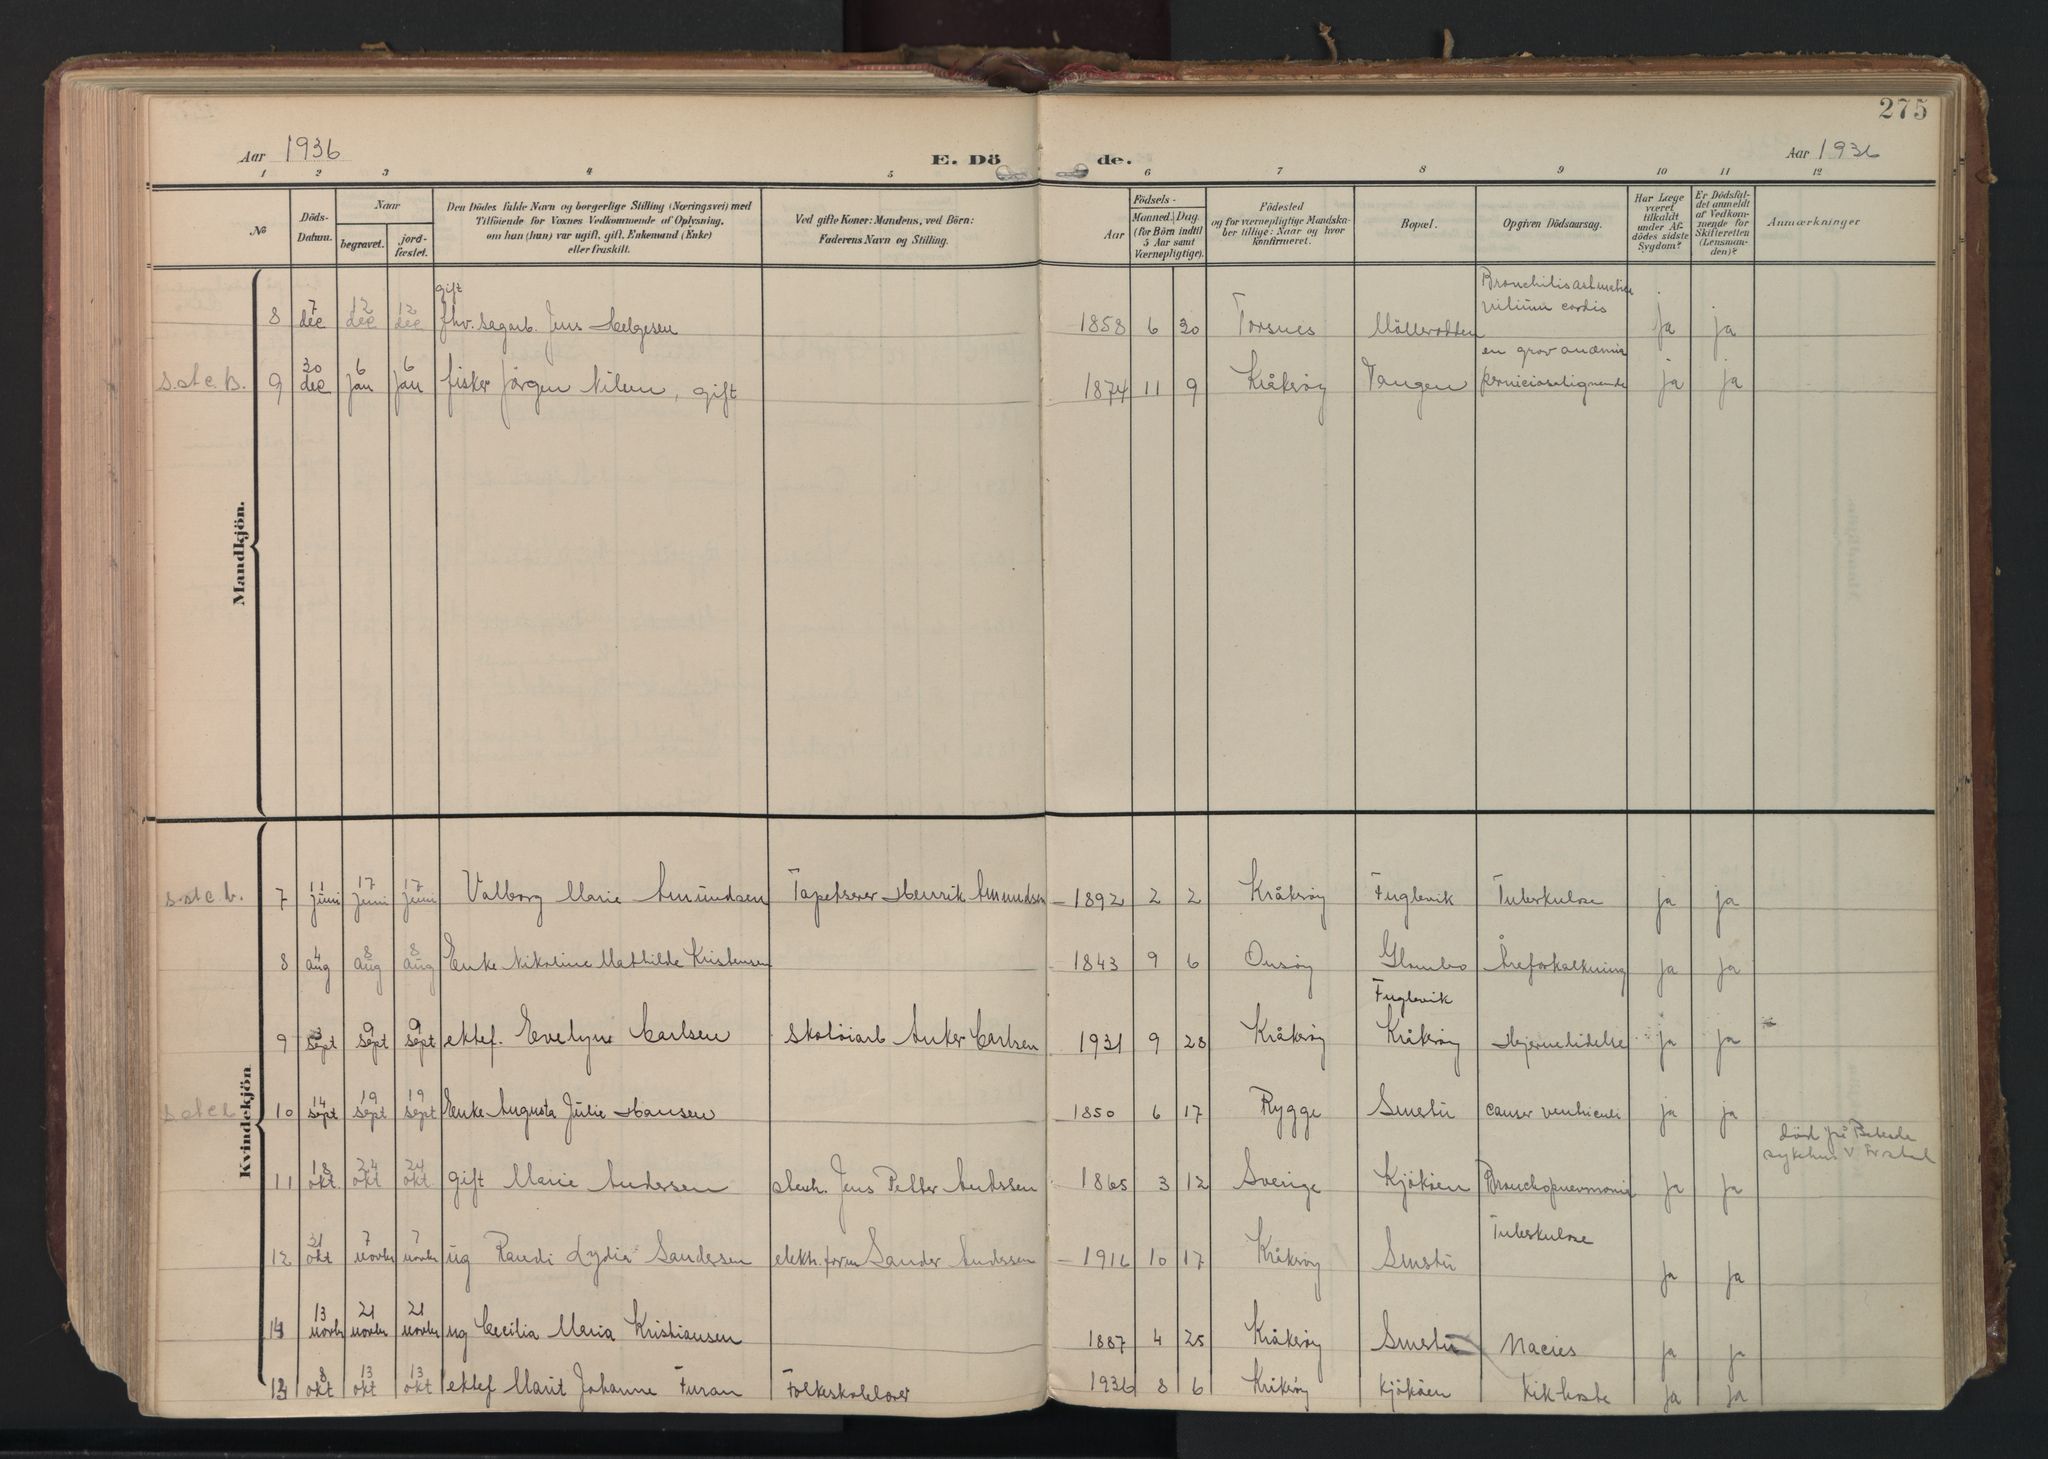 275
Aar 1936 E. Dö de. Aar 1936
1 2 3 4 5 6 7 8 9 10 11 12
No
Döds-Datum.
Naar
begravet.
jordfæstet.
Den Dödes fulde Navn og borgerlige Stilling (Næringsvei) med
Tilföiende for Voxnes Vedkommende af Oplysning,
om han (hun) var ugift, gift, Enkemand (Enke)
eller fraskilt.
Ved gifte Koner: Mandens, ved Börn:
Faderens Navn og Stilling.
Födsels-
Aar
Maaned. Dag.
(for Börn indtil
5 Aar samt
Værnepligtige).
Födested
og for værnepligtige Mandskaber tillige: Naar og hvor
konfirmeret.
Bopæl.
Opgiven Dödsaarsag.
Har Læge
været
tilkaldt
under Afdödes sidste
Sygdom?
Er Dödsfaldet anmeldt
af Vedkommende for
Skifteretten
(Lensmanden)?
Anmærkninger
Mandkjön.
gift Bronchitis
8 7 dec 12 dec 12 dec fhv. sagarb. Jens Helgesen 1858 6 30 Torsnes cordis ja ja
en grov anæmia
9 30 dec 6 jan 6 jan fisker Jörgen Nilsen, gift 1874 11 9 Kråkeröy Tangen perniciosalignende ja ja
Kvindekjön
7 11 juni 17 juni 17 juni Valborg Marie Amundsen Tapetserer Henrik Amundsen 1892 2 2 Kråkeröy Fuglevik Tuberkulose ja ja
8 4 aug 8 aug 8 aug Enke Nikoline Mathilde Kristensen 1843 9 6 Onsöy Glombo Åreforkalkning ja ja
Fuglevik
9 3 sept 9 sept 9 sept ektef. Evelyne Carlsen skotöiarb Anker Carlsen 1931 9 28 Kråkeröy Kråkeröy Hjernelidelse ja ja
10 14 sept 19 sept 19 sept Enke Augusta Julie Hansen 1850 6 17 Rygge Smertu cancer ventriculi ja ja
död på
sykehus
11 18 okt. 24 okt 24 okt gift Marie Andersen Jens Petter Anderssen 1865 3 12 Sverige Kjököen Bronchopnevmoni ja ja
Tuberkulose
12 31 okt 7 novbr 7 novbr ug Randi Lydia Sandersen elektr. form Sander Anderssen 1916 10 17 Kråkeröy Smertu ja ja
14 13 novbr 21 novbr 21 novbr ug Cecilia Maria Kristiansen 1887 4 25 Kråkeröy Smertu ja ja
13 8 okt 13 okt 13 okt ektef Marit Johanne Furan Folkeskolelærer 1936 8 6 Kråkeröy Kjököen Kikhoste ja ja